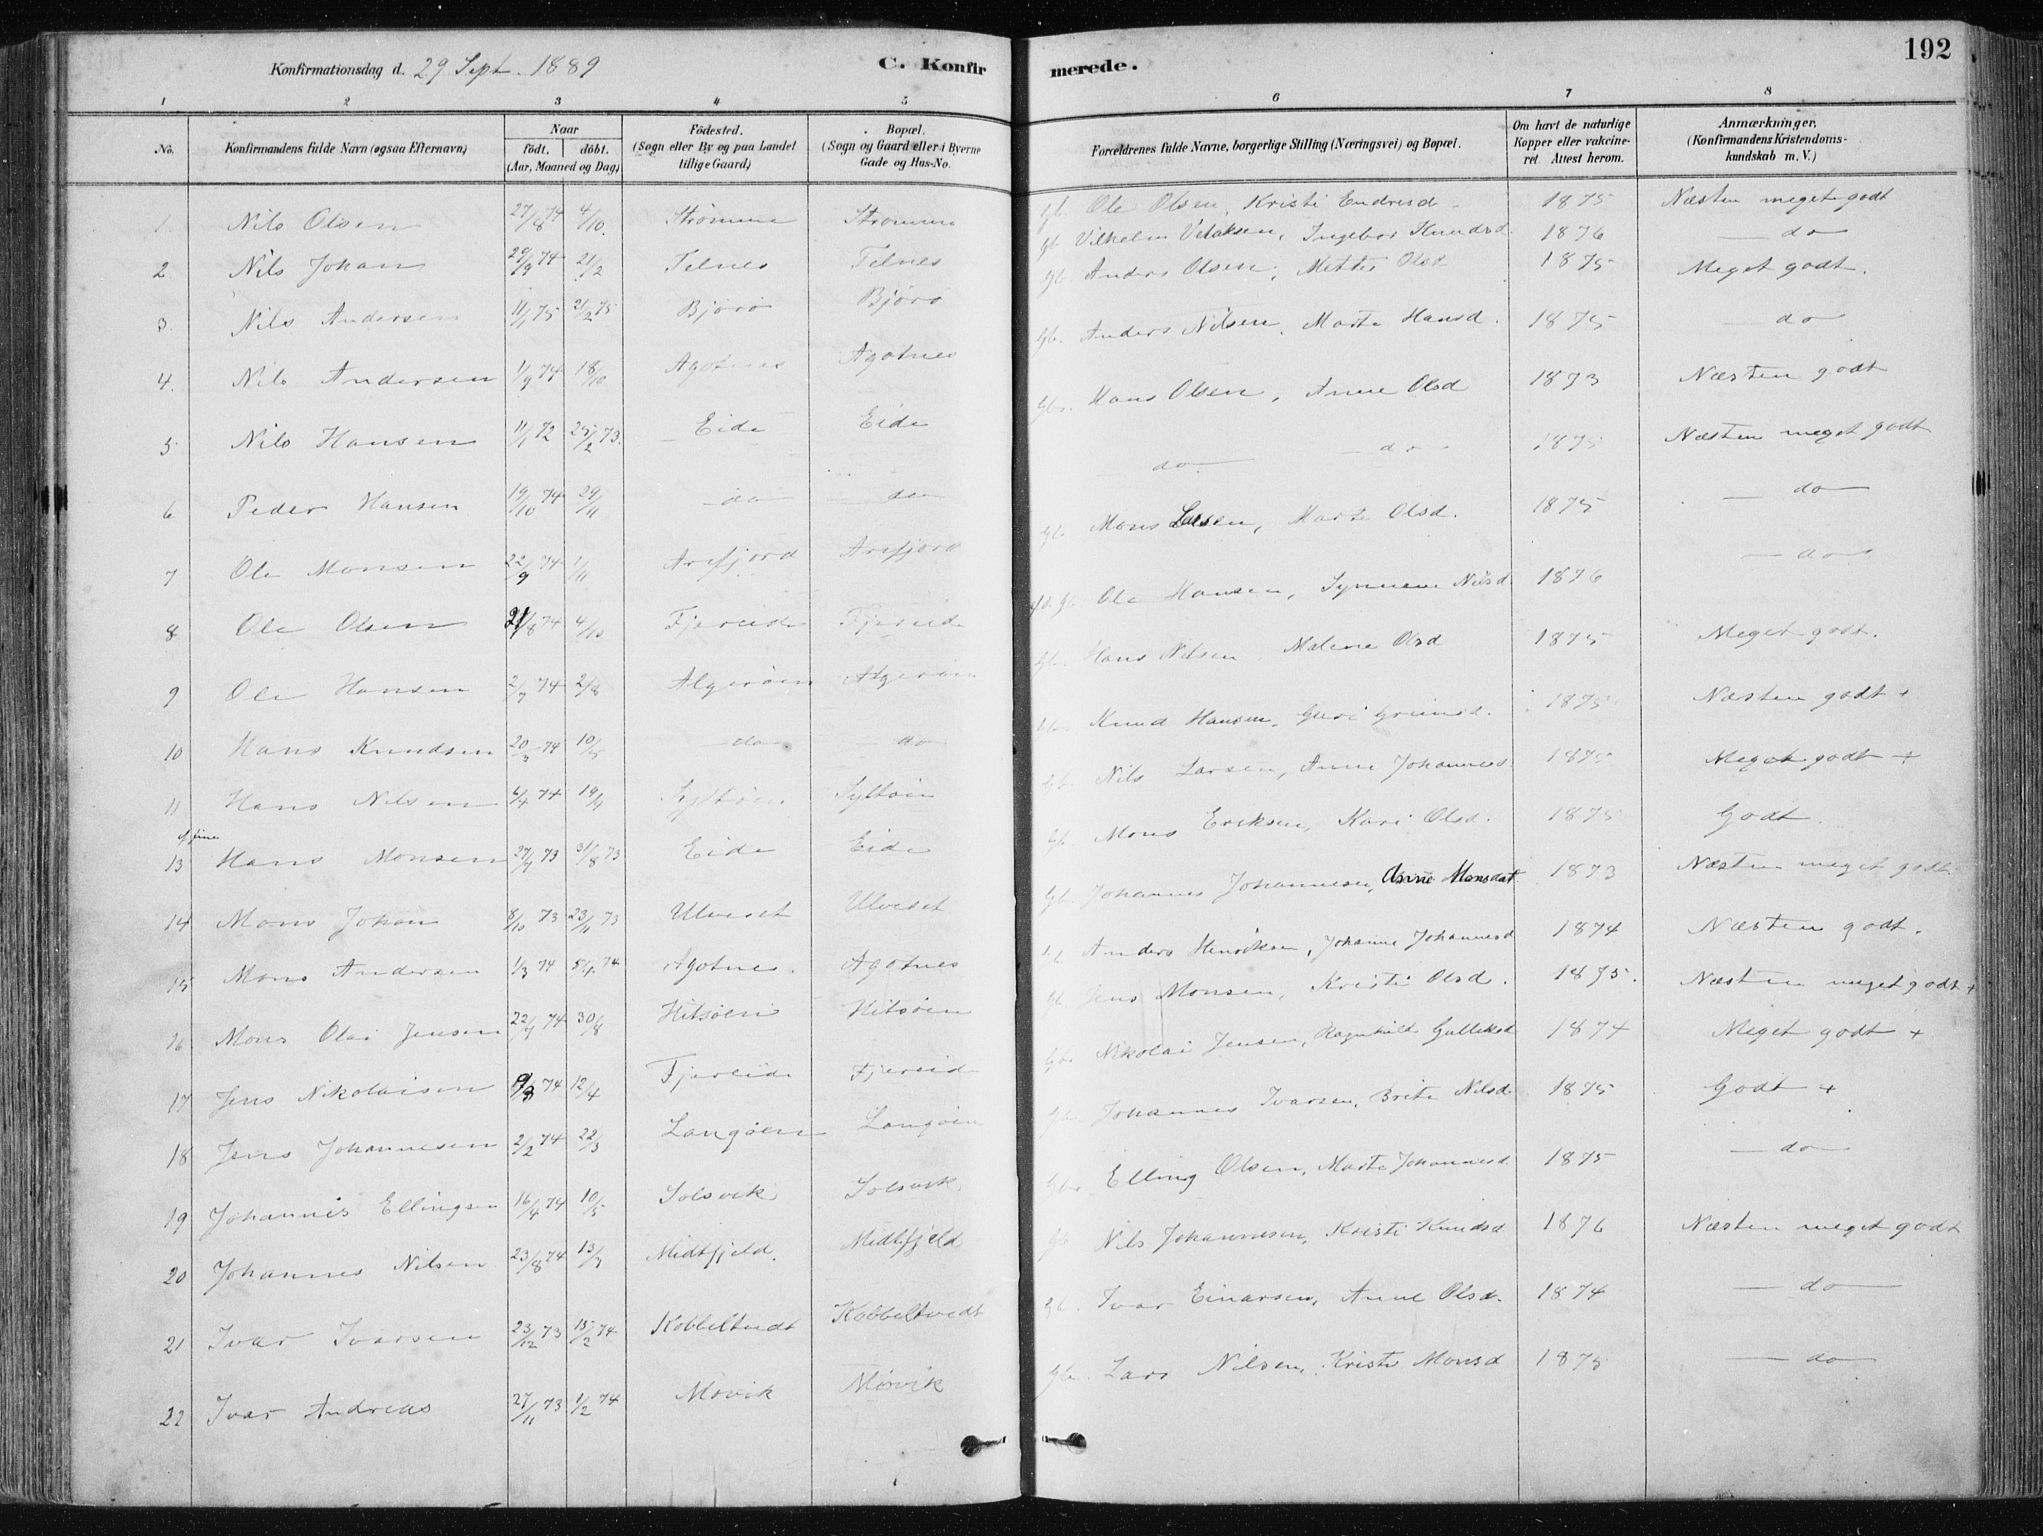 192
Konfirmationsdag d. 29 Sept. 1889
C. Konfirmerede.
1 2 3 4 5 6 7 8
No. Konfirmandens fulde Navn (ogsaa Efternavn) Naar födt. döbt. (Aar, Maaned og Dag) Födested. (Sogn eller By og paa Landet tillige Gaard) Bopæl. (Sogn og Gaard eller i Byerne Gade og Hus-No. Forældrenes fulde Navne, borgerlige Stilling (Næringsvei) og Bopæl. Om havt de naturlige Kopper eller vakcineret. Attest herom. Anmærkninger. (Konfirmandens Kristendomskundskab m. V.)
1. Nils Olsen 27/8 74 4/10. Strømme Strømme Gb. Ole Olsen, Kristi Endresd 1875 Næsten meget godt
2. Nils Johan 29/9 74 21/2 Telnes Telnes Gb Vilhelm Ingebor Knudsd. 1876 do
3. Nils Andersen 11/1 75 21/2 75 Bjørø Bjørø Gb. Anders Olsen, Mette Olsd 1875 Meget godt.
4. Nils Andersen 11/9 74 18/10 Agotnes Agotnes Gb. Anders Nilsen, Marte Hansd. 1875 do
5 Nils Hansen 11/1 72 25/2 73. Eide Eide Gb. Hans Olsen, Anne Olsd 1873 Næsten godt
6 Peder Hansen 19/10 74 29/11 do do do do 1875 Næsten meget godt
7 Ole Monsen 22/9 74 1/11 Arefjord Arefjord Gb. Mons Larsen, Marte Olsd. 1875 do
8 Ole Olsen 21/8 74 4/10 Fjereide Fjereide Gb Ole Hansen, Synneve Nilsd. 1876 do
9 Ole Hansen 2/7 74 2/8 Algerøen Algerøen Gb. Hans Nilsen, Malene Olsd 1875 Meget godt.
10 Hans Knudsen 20/3 74 10/5 do do Gb. Knud Hansen, Guri Grimsd. 1875 Næsten godt +
11 Hans Nilsen 6/4 74 19/4 Syltøen Syltøen Gb. Nils Larsen, Anne Johannesd 1875 Meget godt +
13 Hans Monsen 27/7 73 31/8 73 Eide Eide Gb. Mons Eriksen, Kari Olsd. 1875 Godt.
14 Mons Johan 8/10 73 23/11 73 Ulveset Ulveset Gb. Johannes Johannesen, Anne Monsdat. 1873 Næsten meget godt
15 Mons Andersen 1/3 74 5/4 74 Agotnes. Agotnes Gb. Anders Henriksen, Johanne Johannesd 1874 Næsten godt.
16 Mons Olai Jensen 22/7 74 30/8 Hitsøen Hitsøen Gb. Jens Monsen, Kristi Olsd. 1875. Næsten meget godt +
17 Jens Nikolaisen 9/3 74 12/4 Fjereide Fjereide Gb. Nikolai Jensen, Ragnhild Gulliksd 1874 Meget godt +
18 Jens Johannesen 2/2 74 22/3 Langøen Langøen Gb. Johannes Ivarsen, Brite Nilsd. 1875 Godt +
19 Johannes Ellingsen 16/4 74 10/5 Solsvik Solsvik Gb. Elling Olsen, Marte Johannesd. 1875 do
20 Johannes Nilsen 23/8 74 13/9 Midtfjeld. Midtfjeld Gb. Nils Johannesen, Kristi Knudsd 1876 Næsten meget godt
21 Ivar Ivarsen 23/12 73 15/2 74 Kobbeltvedt Kobbeltvedt Gb. Ivar Einarsen, Anne Olsd. 1874 do
22 Ivar Andreas 27/11 73 1/2 74 Møvik Møvik Gb. Lars Nilsen, Kristi Monsd 1875 do